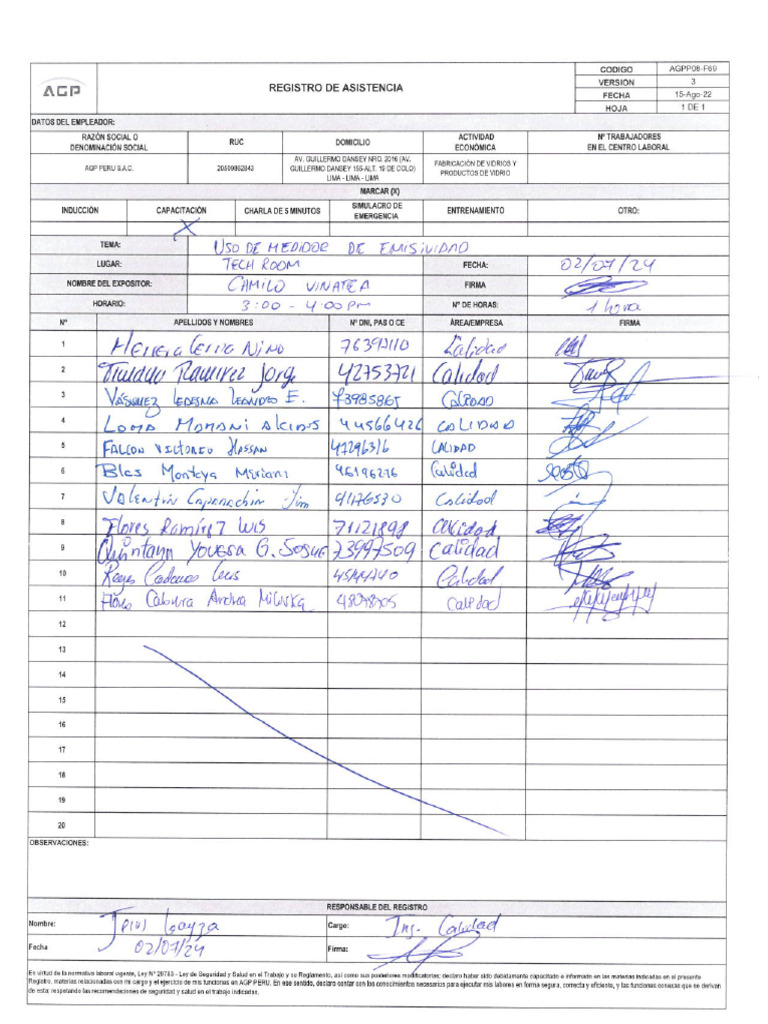 AGP
REGISTRO DE ASISTENCIA
CODIGO AGPP08-F69
VERSIÓN 3
FECHA 15-Ago-22
HOJA 1 DE 1
DATOS DEL EMPLEADOR:
RAZÓN SOCIAL O DENOMINACIÓN SOCIAL RUC DOMICILIO ACTIVIDAD ECONÓMICA Nº TRABAJADORES EN EL CENTRO LABORAL
AGP PERU S.A.C. AV. GUILLERMO DANSEY NRO. 2016 (AV. GUILLERMO DANSEY 155-ALT. 19 DE COLO) LIMA - LIMA - LIMA FABRICACIÓN DE VIDRIOS Y PRODUCTOS DE VIDRIO
MARCAR (X)
INDUCCIÓN CAPACITACIÓN CHARLA DE 5 MINUTOS SIMULACRO DE EMERGENCIA ENTRENAMIENTO OTRO:
X
TEMA: USO DE MEDIDOR DE EMISIVIDAD
LUGAR: TECH ROOM FECHA: 02/07/24
NOMBRE DEL EXPOSITOR: CAMILO VINATEA FIRMA
HORARIO: 3:00 - 4:00 pm Nº DE HORAS: 1 hora
Nº APELLIDOS Y NOMBRES Nº DNI, PAS O CE ÁREA/EMPRESA FIRMA
1 Herrera Nino Calidad
2 Ramirez Jorge 42753721 Calidad
3 VÁSQUEZ LEDESMA LEANDRO E. 73985865 CALIDAD
4 LOMA MAMANI ALCIDES 44566426 CALIDAD
5 FALCON VICTORIO HASSAN 47296316 CALIDAD
6 Blas Montoya Miriam 46196276 Calidad
7 Valentin Jim 41476530 Calidad
8 Flores Ramírez Luis 71121898 Calidad
9 Quintana G. Josue 73997509 Calidad
10 Reyes Luis Calidad
11 Flores Andrea Miluska Calidad
12
13
14
15
16
17
18
19
20
OBSERVACIONES:
RESPONSABLE DEL REGISTRO
Nombre: Loayza Cargo: Ing. Calidad
Fecha 02/07/24 Firma:
En virtud de la normativa laboral vigente, Ley Nº 29783 - Ley de Seguridad y Salud en el Trabajo y su Reglamento, así como sus posteriores modificatorias; declaro haber sido debidamente capacitado e informado en las materias indicadas en el presente
Registro, materias relacionadas con mi cargo y el ejercicio de mis funciones en AGP PERU. En ese sentido, declaro contar con los conocimientos necesarios para ejecutar mis labores en forma segura, correcta y eficiente, y las funciones conexas que se deriven
de esta; respetando las recomendaciones de seguridad y salud en el trabajo indicadas.